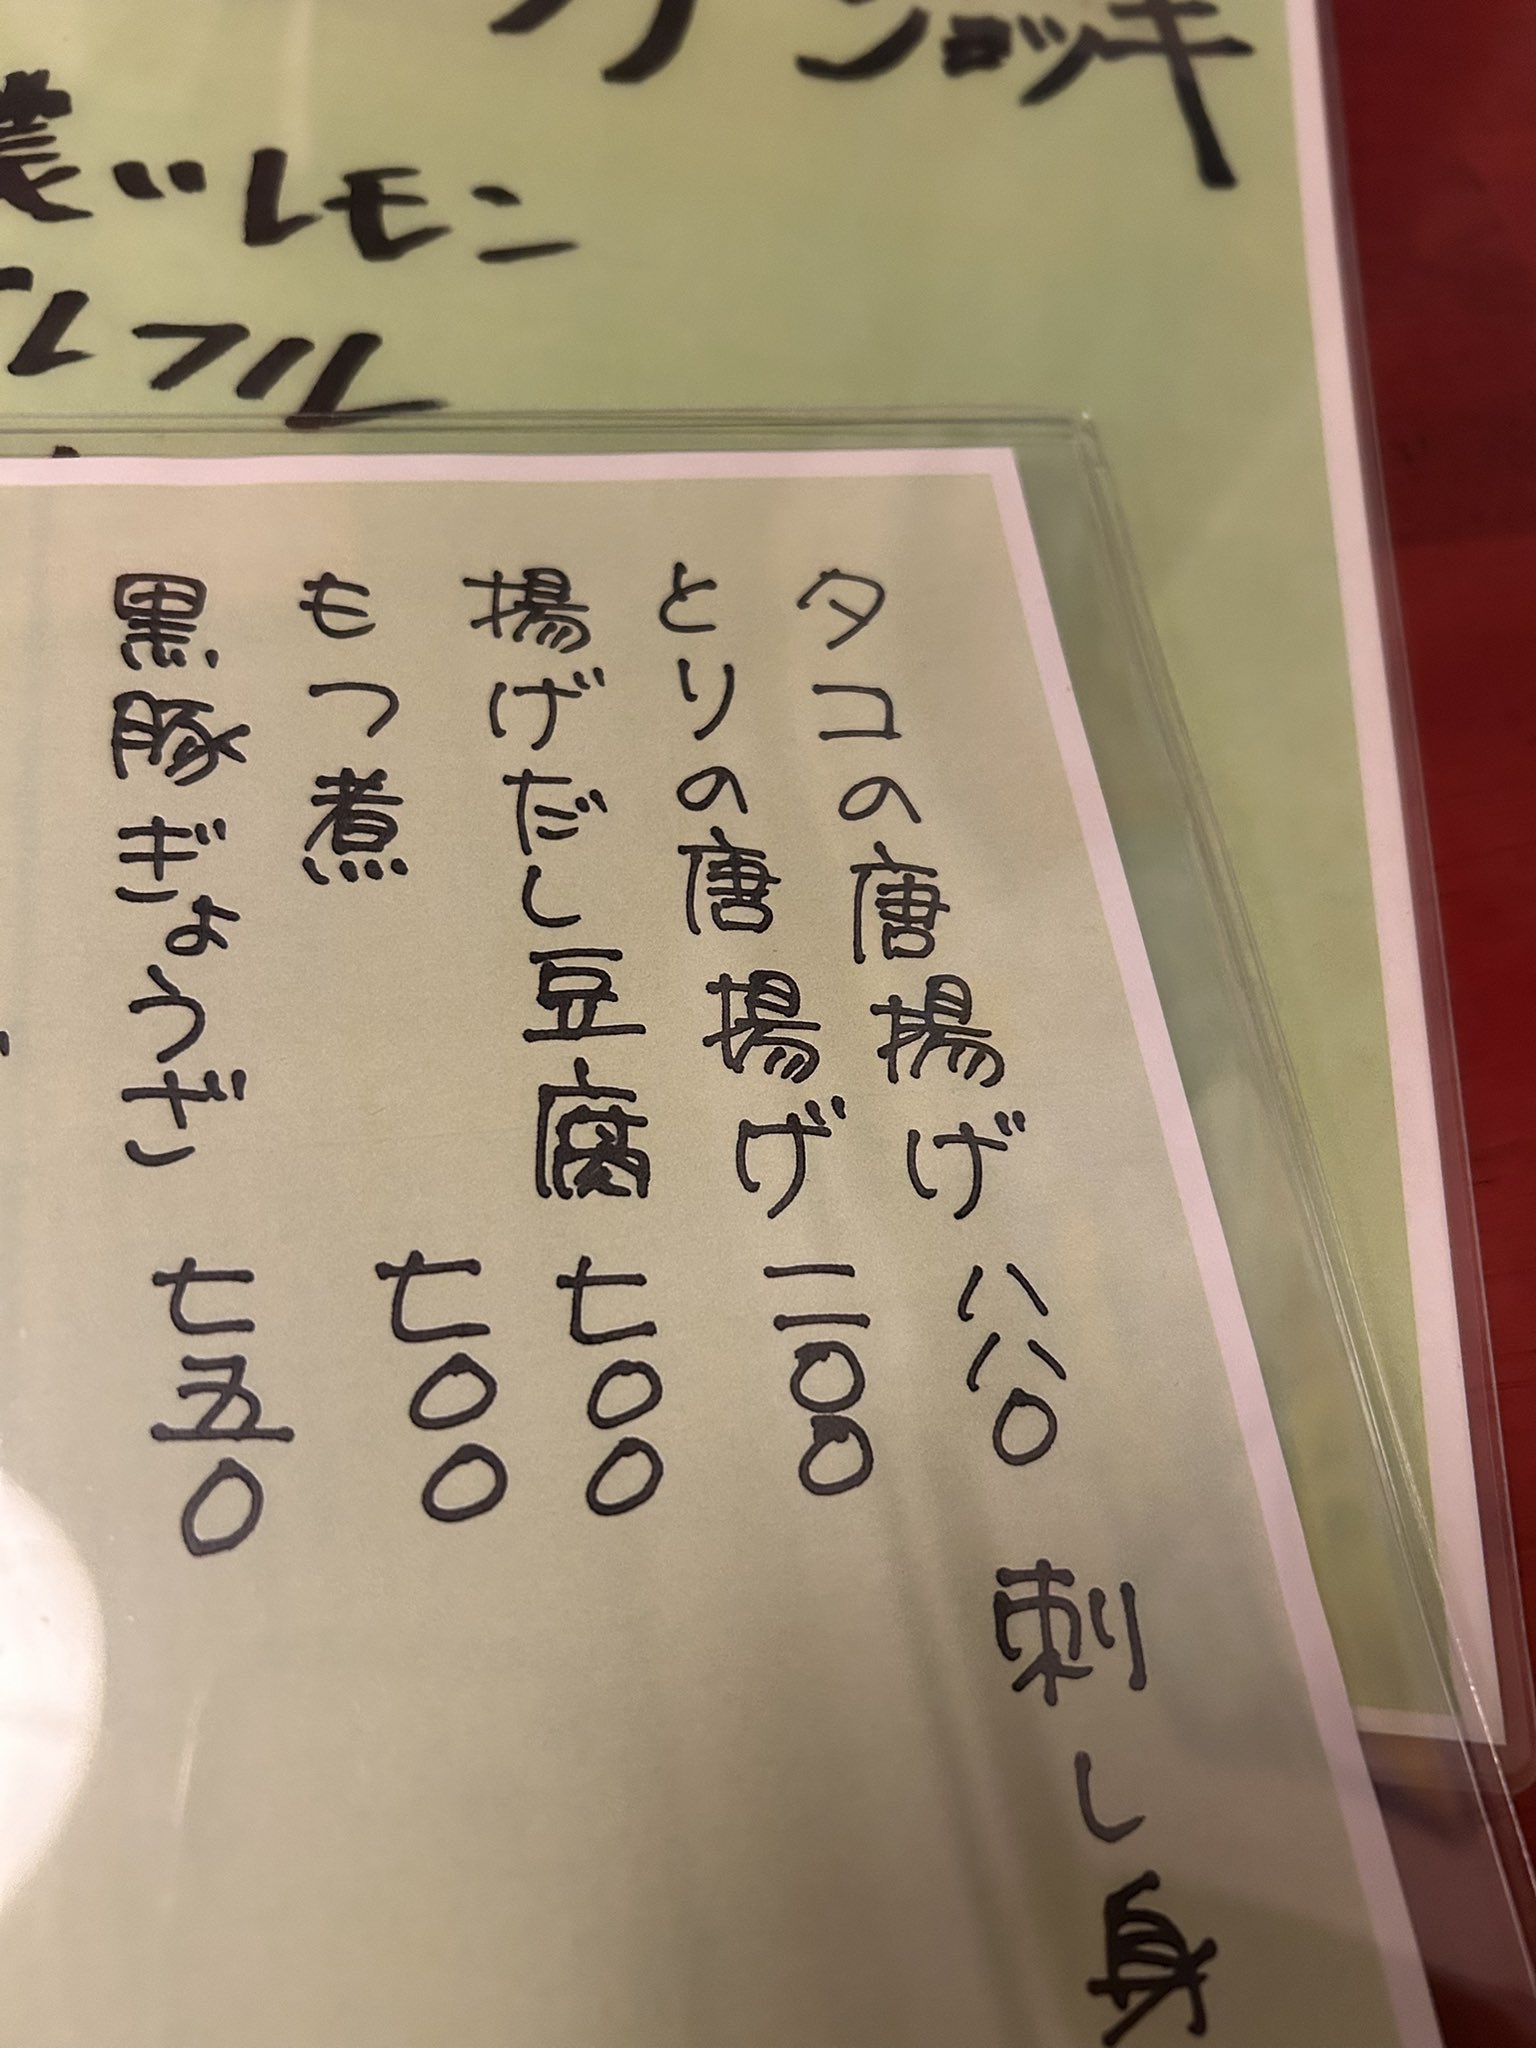 ジョッキ
レモン
タコの唐揚げ 八八〇
とりの唐揚げ 一一〇〇
揚げだし豆腐 七〇〇
もつ煮 七〇〇
黒豚ぎょうざ 七五〇
刺し身